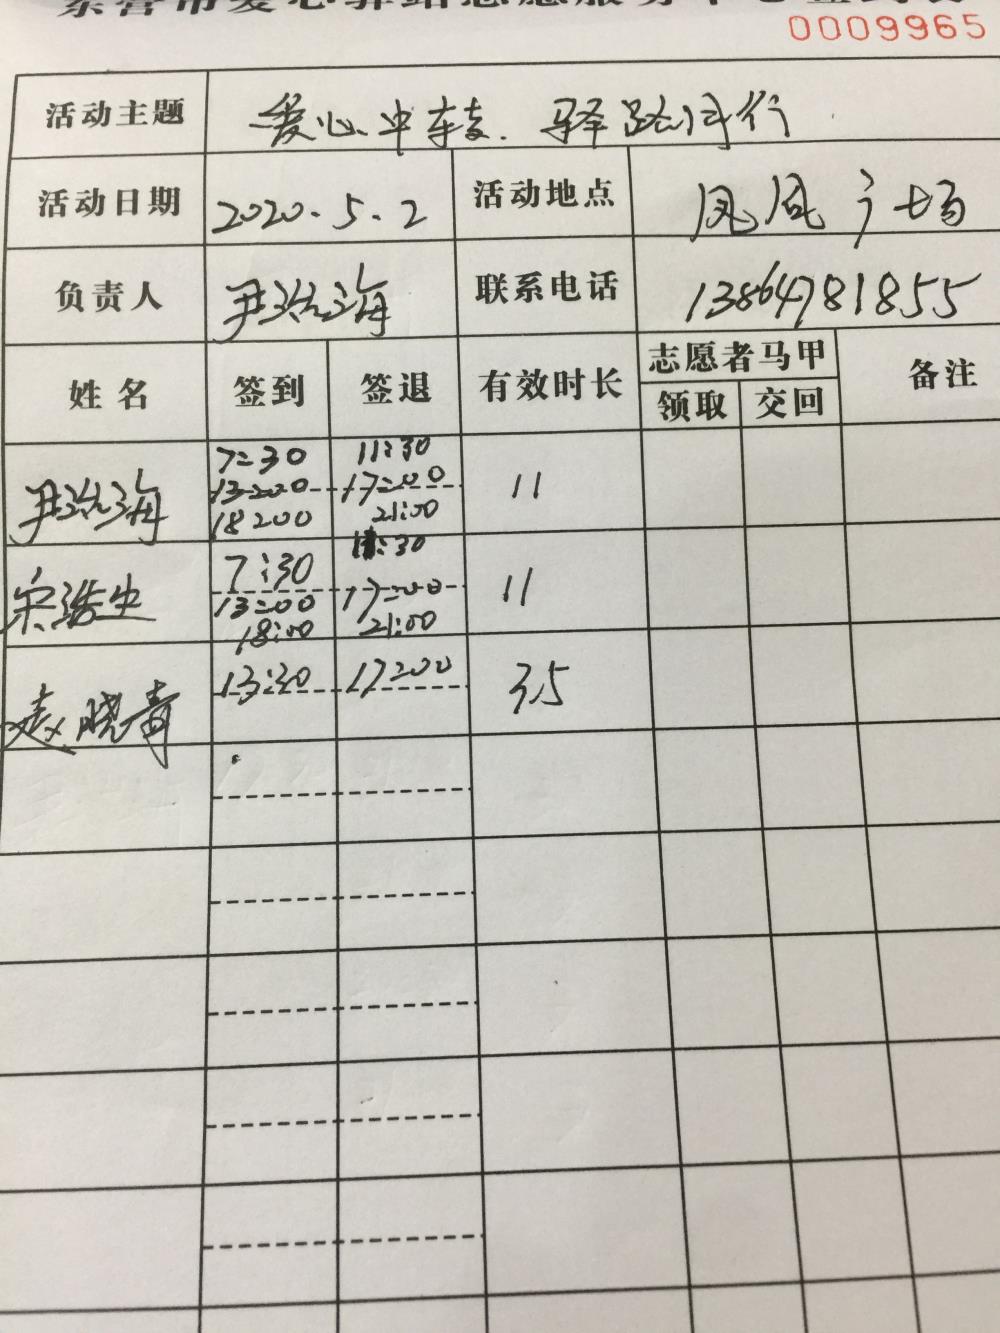 0009965
活动主题 爱心中转.驿路同行
活动日期 2020.5.2 活动地点 凤凰广场
负责人 尹治海 联系电话 13864781855
姓名 签到 签退 有效时长 志愿者马甲 备注
领取 交回
尹治海 7:30 11:30 11
13:00 17:00
18:00 21:00
宋浩 7:30 11:30 11
13:00 17:00
18:00 21:00
赵晓青 13:30 17:00 3.5